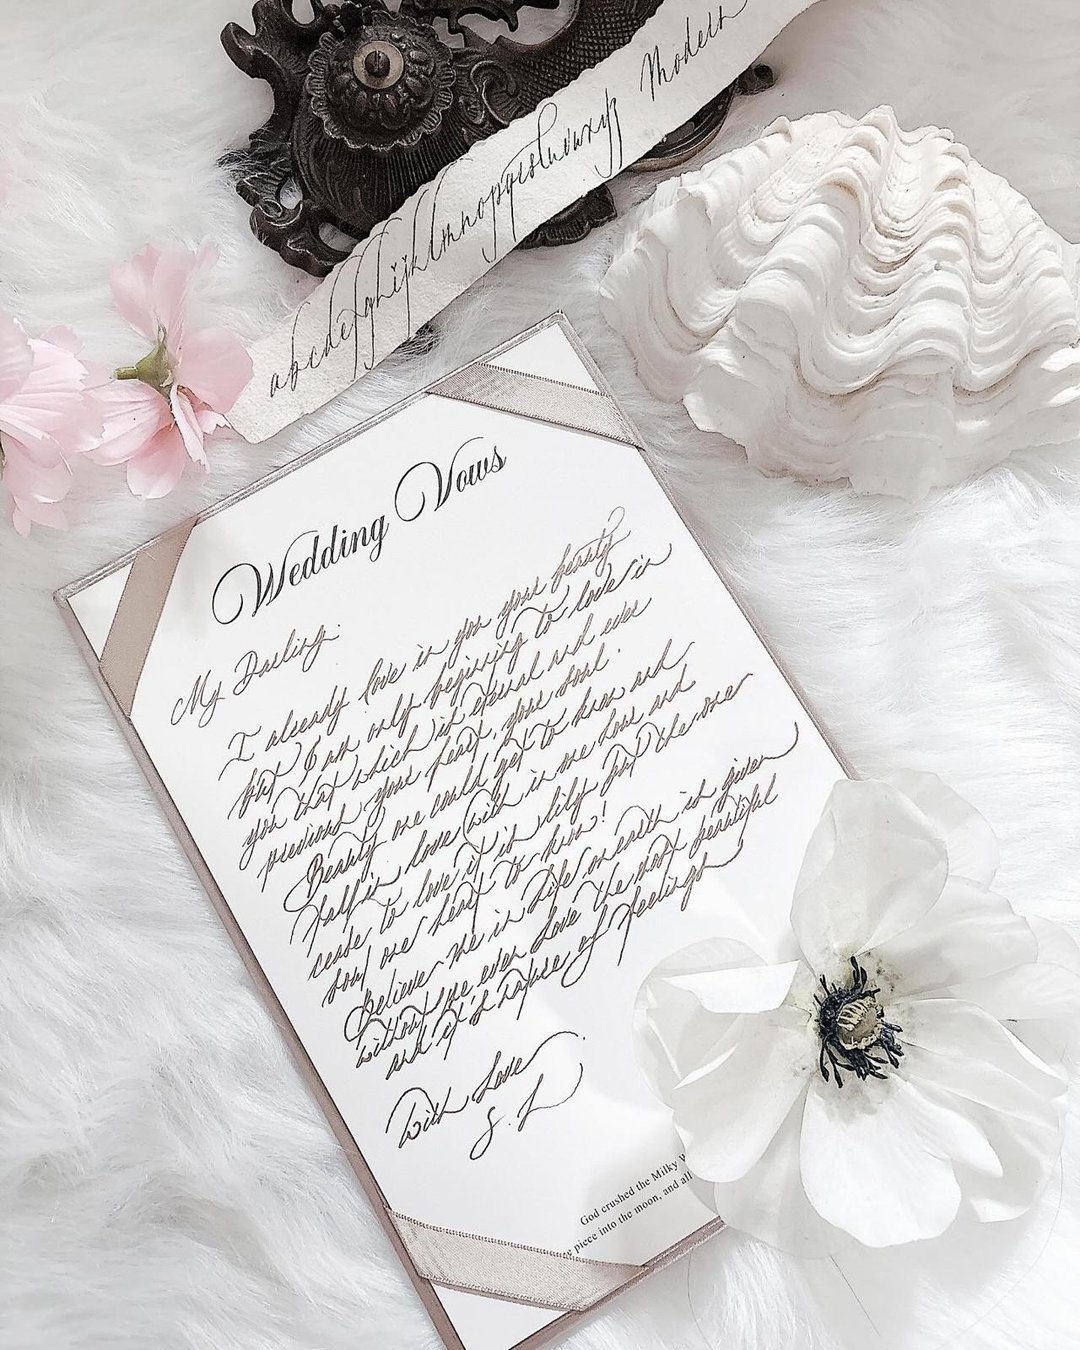 Modern
abcdefghijklmnopqrstuvwxyz
Wedding Vows
My Darling:
I already love in you your beauty
but I am only beginning to love in
you that which is eternal and ever
previous your heart, your soul.
Beauty one could get to know and
fall in love with in one hour and
cease to love it it is but the one
soul one heart to know!
Believe me in life on earth is given
without me ever love the most beautiful
and it's nature of feelings
With Love
S. L
God crushed the Milky
piece into the moon, and all